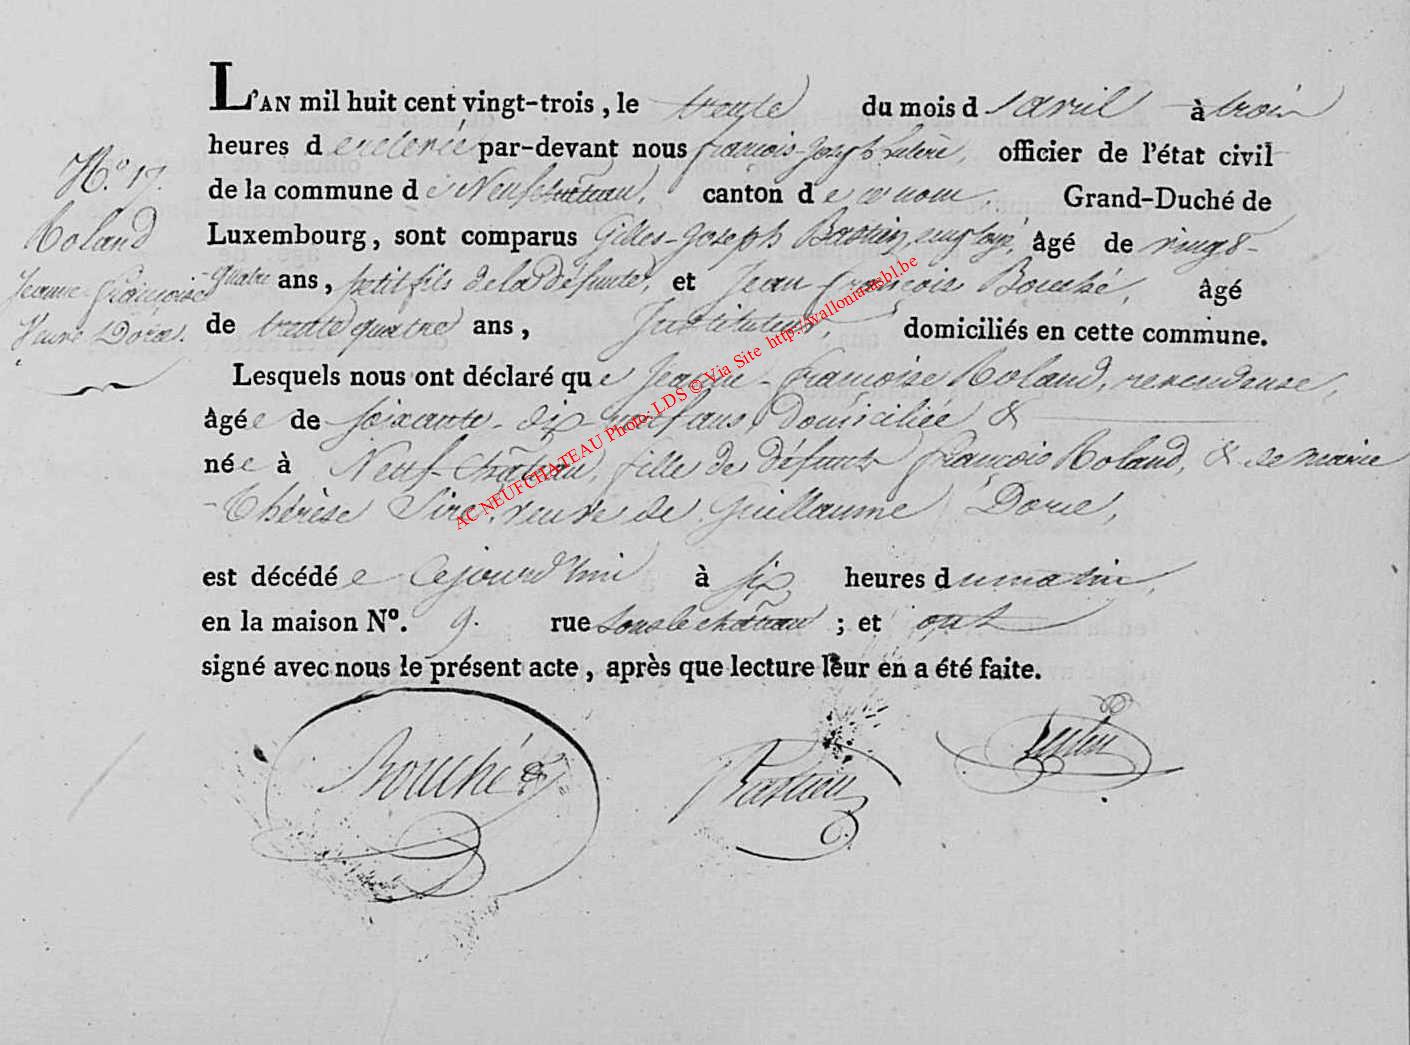 L'AN mil huit cent vingt-trois, le trente du mois d'avril à trois
heures de relevée par-devant nous françois-joseph officier de l'état civil
N.° 17.
de la commune de Neufchâteau, canton de ce nom, Grand-Duché de
Roland
Luxembourg, sont comparus Gilles-Joseph Bastien, âgé de vingt-
Jeanne-françoise
quatre ans, petit fils de la défunte, et Jean françois Bouché, âgé
Veuve Dorue.
de trente quatre ans, Instituteur, domiciliés en cette commune.
Lesquels nous ont déclaré que Jeanne-françoise Roland, revendeuse,
âgée de soixante-dix neuf ans, domiciliée &
née à Neuf-château, fille de défunts françois Roland, & de marie
-Thérèse Sire, veuve de Guillaume Dorue,
est décédée cejourd'hui à six heures du matin,
en la maison N°. 9. rue sous le château ; et ont
signé avec nous le présent acte, après que lecture leur en a été faite.
Bouché Bastien
AC NEUFCHATEAU Photo: LDS © Via Site http://wallonia-asbl.be